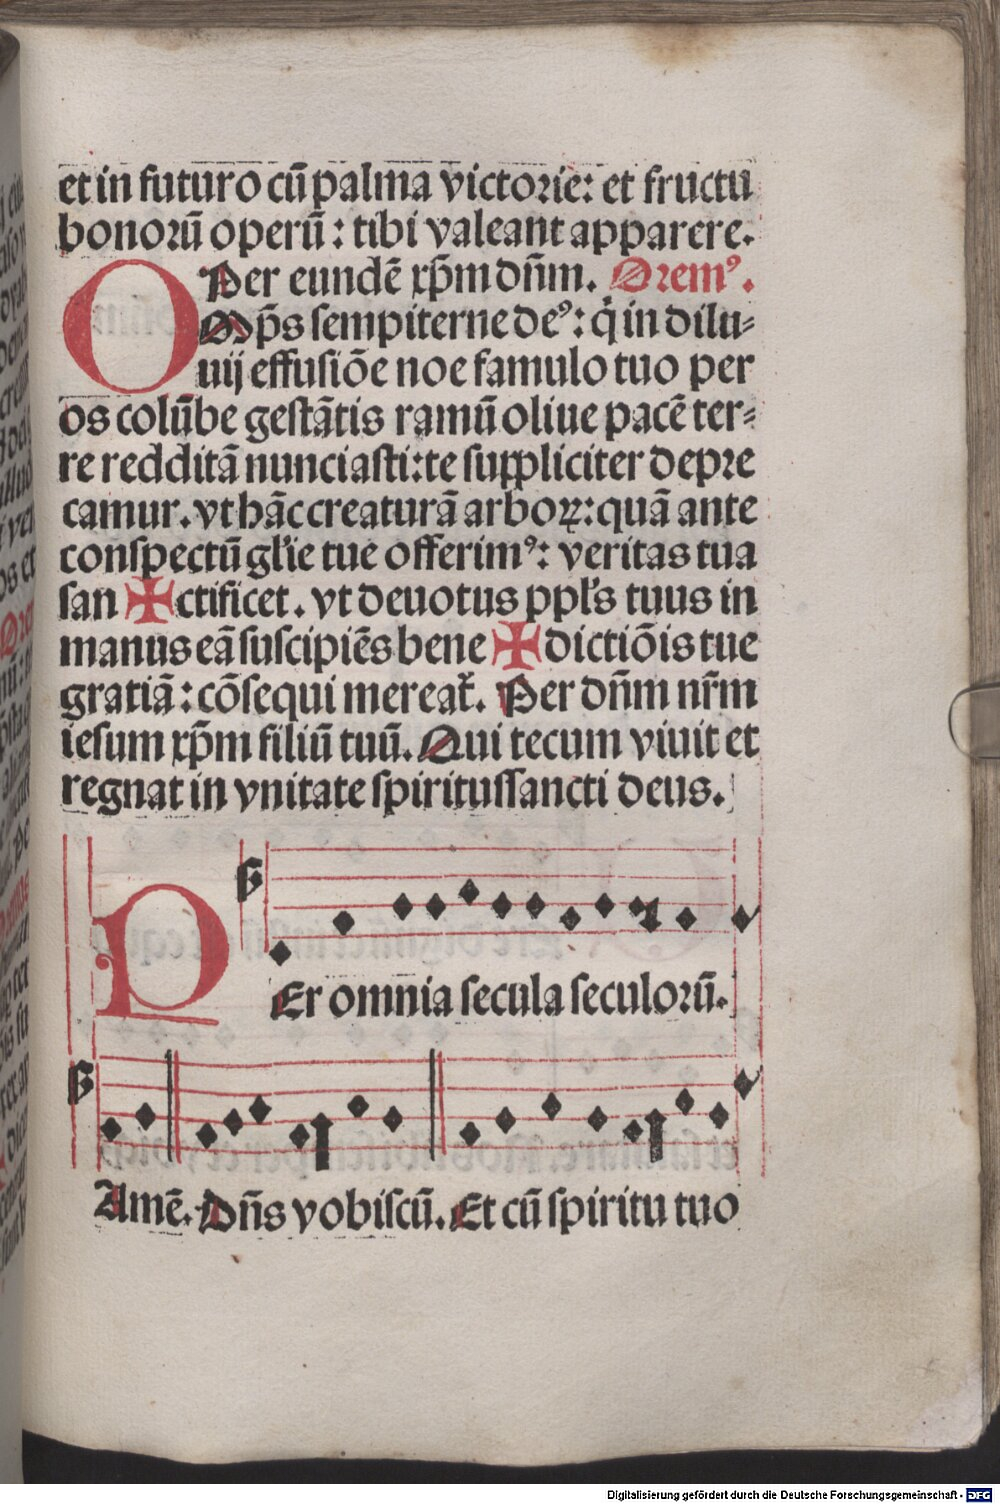 et in futuro cū palma victorie: et fructu
bonorū operū: tibi valeant apparere.
Per eundē xp̄m dn̄m. Oremꝰ.
Omp̄s sempiterne deꝰ: q̇ in dilu⸗
uij effusiōe noe famulo tuo per
os colūbe gestātis ramū oliue pacē ter⸗
re redditā nunciasti: te suppliciter depre
camur. vt hāc creaturā arboꝝ: quā ante
conspectū gl'ie tue offerimꝰ: veritas tua
san ✠ ctificet. vt deuotus ppl's tuus in
manus eā suscipiēs bene ✠ dictiōis tue
gratiā: cōsequi mereat᷑. Per dn̄m nr̄m
iesum xp̄m filiū tuū. Qui tecum viuit et
regnat in vnitate spiritussancti deus.
PEr omnia secula seculorū.
Amē. Dn̄s vobiscū. Et cū spiritu tuo
Digitalisierung gefördert durch die Deutsche Forschungsgemeinschaft - DFG